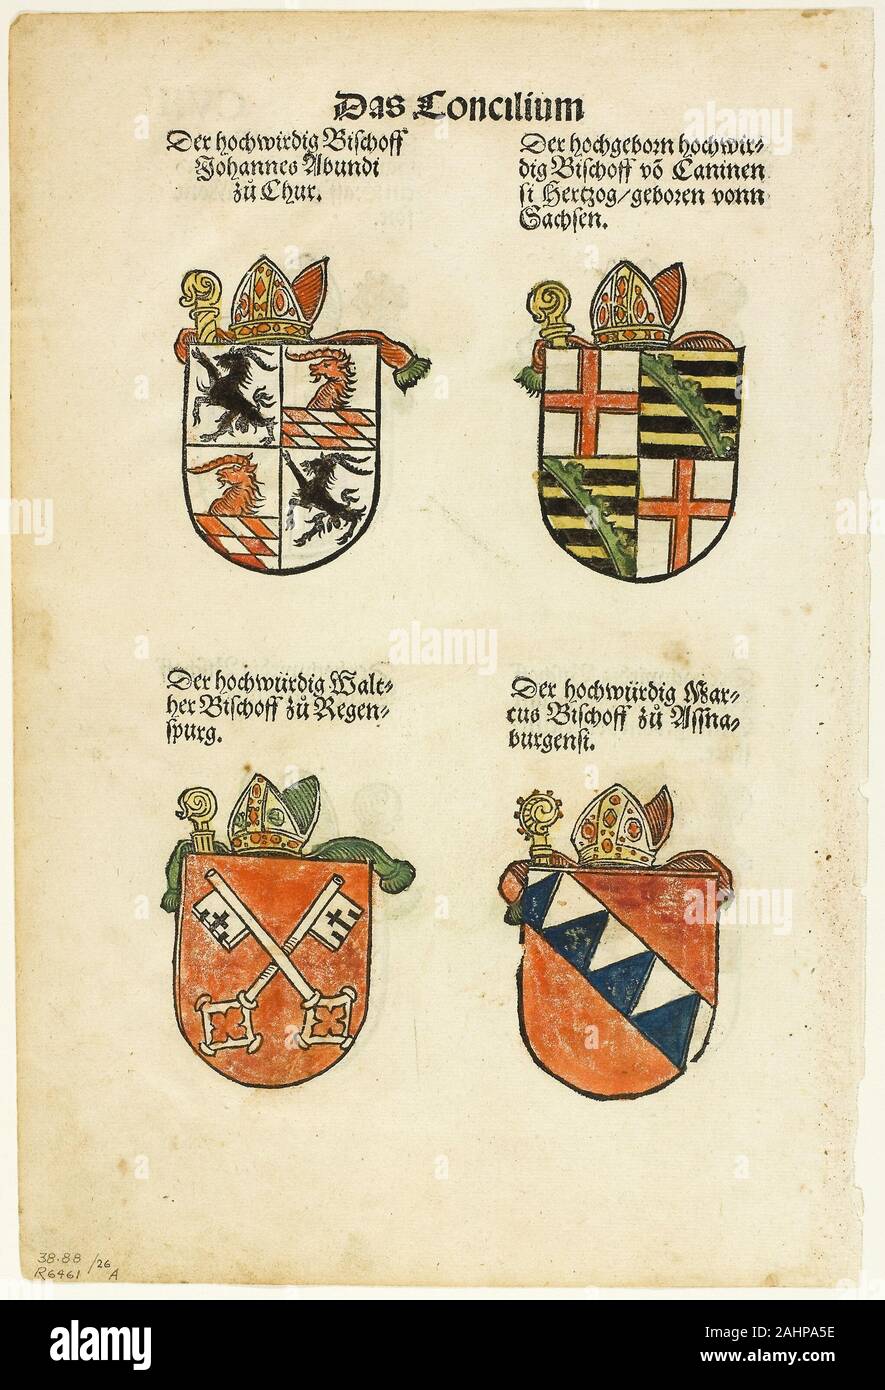 Das Concilium
Der hochwirdig Bischoff
Johannes Abundi
zů Chur.
Der hochgeborn hochwir⸗
dig Bischoff võ Caninen
si Hertzog/geboren vonn
Sachsen.
Der hochwürdig Walt⸗
her Bischoff zů Regen⸗
spurg.
Der hochwürdig Mar⸗
cus Bischoff zů Assna⸗
burgensi.
38.88 /26
R6461 A
alamy
alamy
alamy
Image ID: 2AHPA5E
www.alamy.com